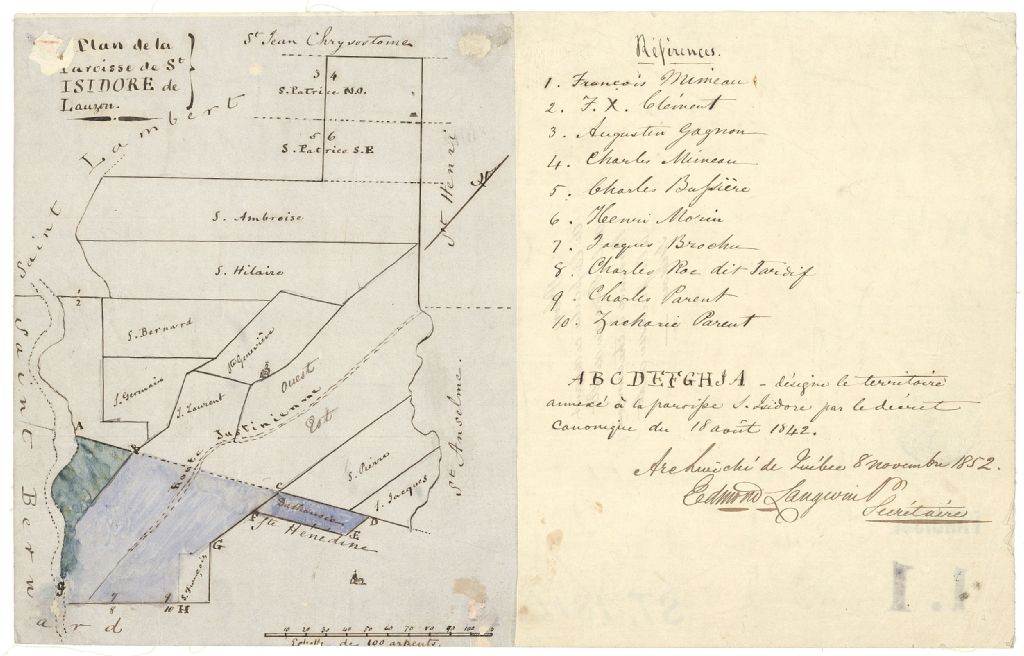 Plan de la
Paroisse de St
ISIDORE de
Lauzon.
St Jean Chrysostome
Lambert
Saint
3 4
S. Patrice N.O.
5 6
S. Patrice S.E
St Henri
S. Ambroise
S. Hilaire
1
2
S. Bernard
Ste Geneviève
Ouest
S. Germain
S. Laurent
Route Justinienne
Est
St Anselme.
Saint Bernard
A
B
S. Pierre
S. Jacques
C
Bathurst
D
F
E
Ste Hénédine
G
S. François
7
8
9
10
H
10 20 30 40 50 60 70 80 90 100
Echelle de 100 arpents.
Références.
1. François Mimeau
2. F. X. Clément
3. Augustin Gagnon
4. Charles Mimeau
5. Charles Bussière
6. Henri Morin
7. Jacques Brochu
8. Charles Roc dit Tardif
9. Charles Parent
10. Zacharie Parent
ABCDEFGHJA - désigne le territoire
annexé à la paroisse S. Isidore par le décret
canonique du 18 août 1842.
Archevêché de Québec 8 novembre 1852.
Edmond Langevin Ptre
Secrétaire